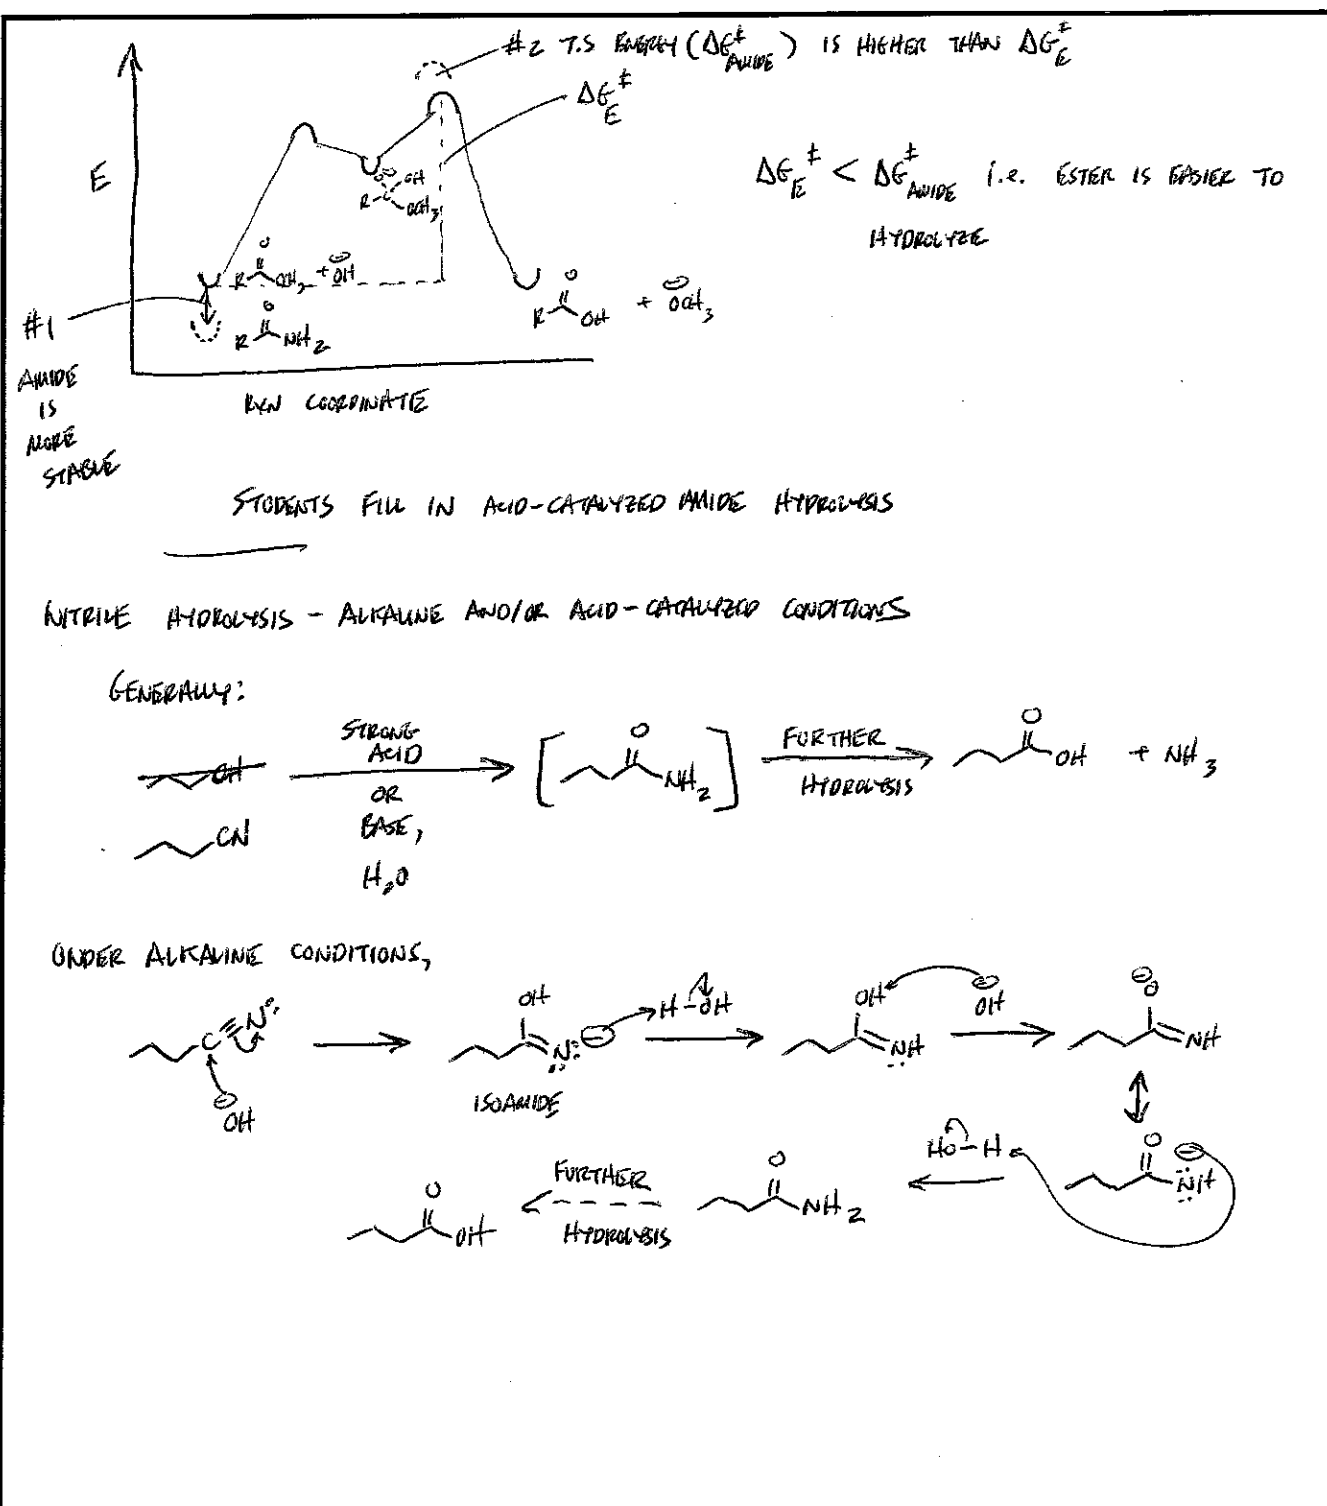 #2 T.S ENERGY (ΔG‡ AMIDE) IS HIGHER THAN ΔG‡E
ΔG‡E
E
ΔG‡E < ΔG‡AMIDE i.e. ESTER IS EASIER TO
HYDROLYZE
⊖O OH
R-C
OCH3
O
R OCH3 + ⊖OH
O
R OH + ⊖OCH3
#1
O
R NH2
AMIDE
IS
MORE
STABLE
RXN COORDINATE
STUDENTS FILL IN ACID-CATALYZED AMIDE HYDROLYSIS
NITRILE HYDROLYSIS - ALKALINE AND/OR ACID-CATALYZED CONDITIONS
GENERALLY:
OH
STRONG
ACID
OR
BASE,
H2O
CN
O
NH2
FURTHER
HYDROLYSIS
O
OH + NH3
UNDER ALKALINE CONDITIONS,
C≡N:
⊖OH
OH
N: ⊖
ISOAMIDE
H-OH
OH
NH
⊖OH
⊖O
NH
O ⊖
NH
HO-H
O
NH2
FURTHER
HYDROLYSIS
O
OH